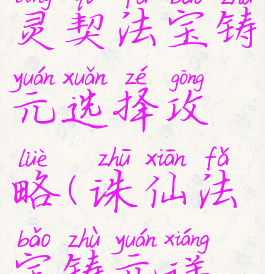 líng qì fǎ bǎo zhù
灵契法宝铸
yuán xuǎn zé gōng
元选择攻
lüè zhū xiān fǎ
略(诛仙法
bǎo zhù yuán xiáng
宝铸元详